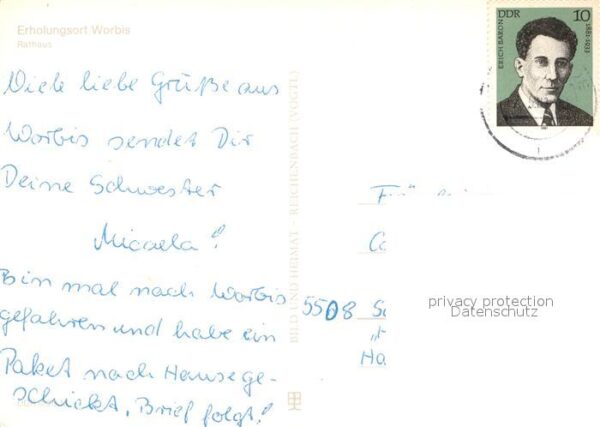 Erholungsort Worbis
Rathaus
Viele liebe Grüße aus
Worbis sendet Dir
Deine Schwester
Micaela!
Bin mal nach Worbis
gefahren und habe ein
Paket nach Hause ge-
schickt, Brief folgt!
BILD UND HEIMAT REICHENBACH (VOGTL)
DDR 10
ERICH BARON
1881-1933
5508
privacy protection
Datenschutz